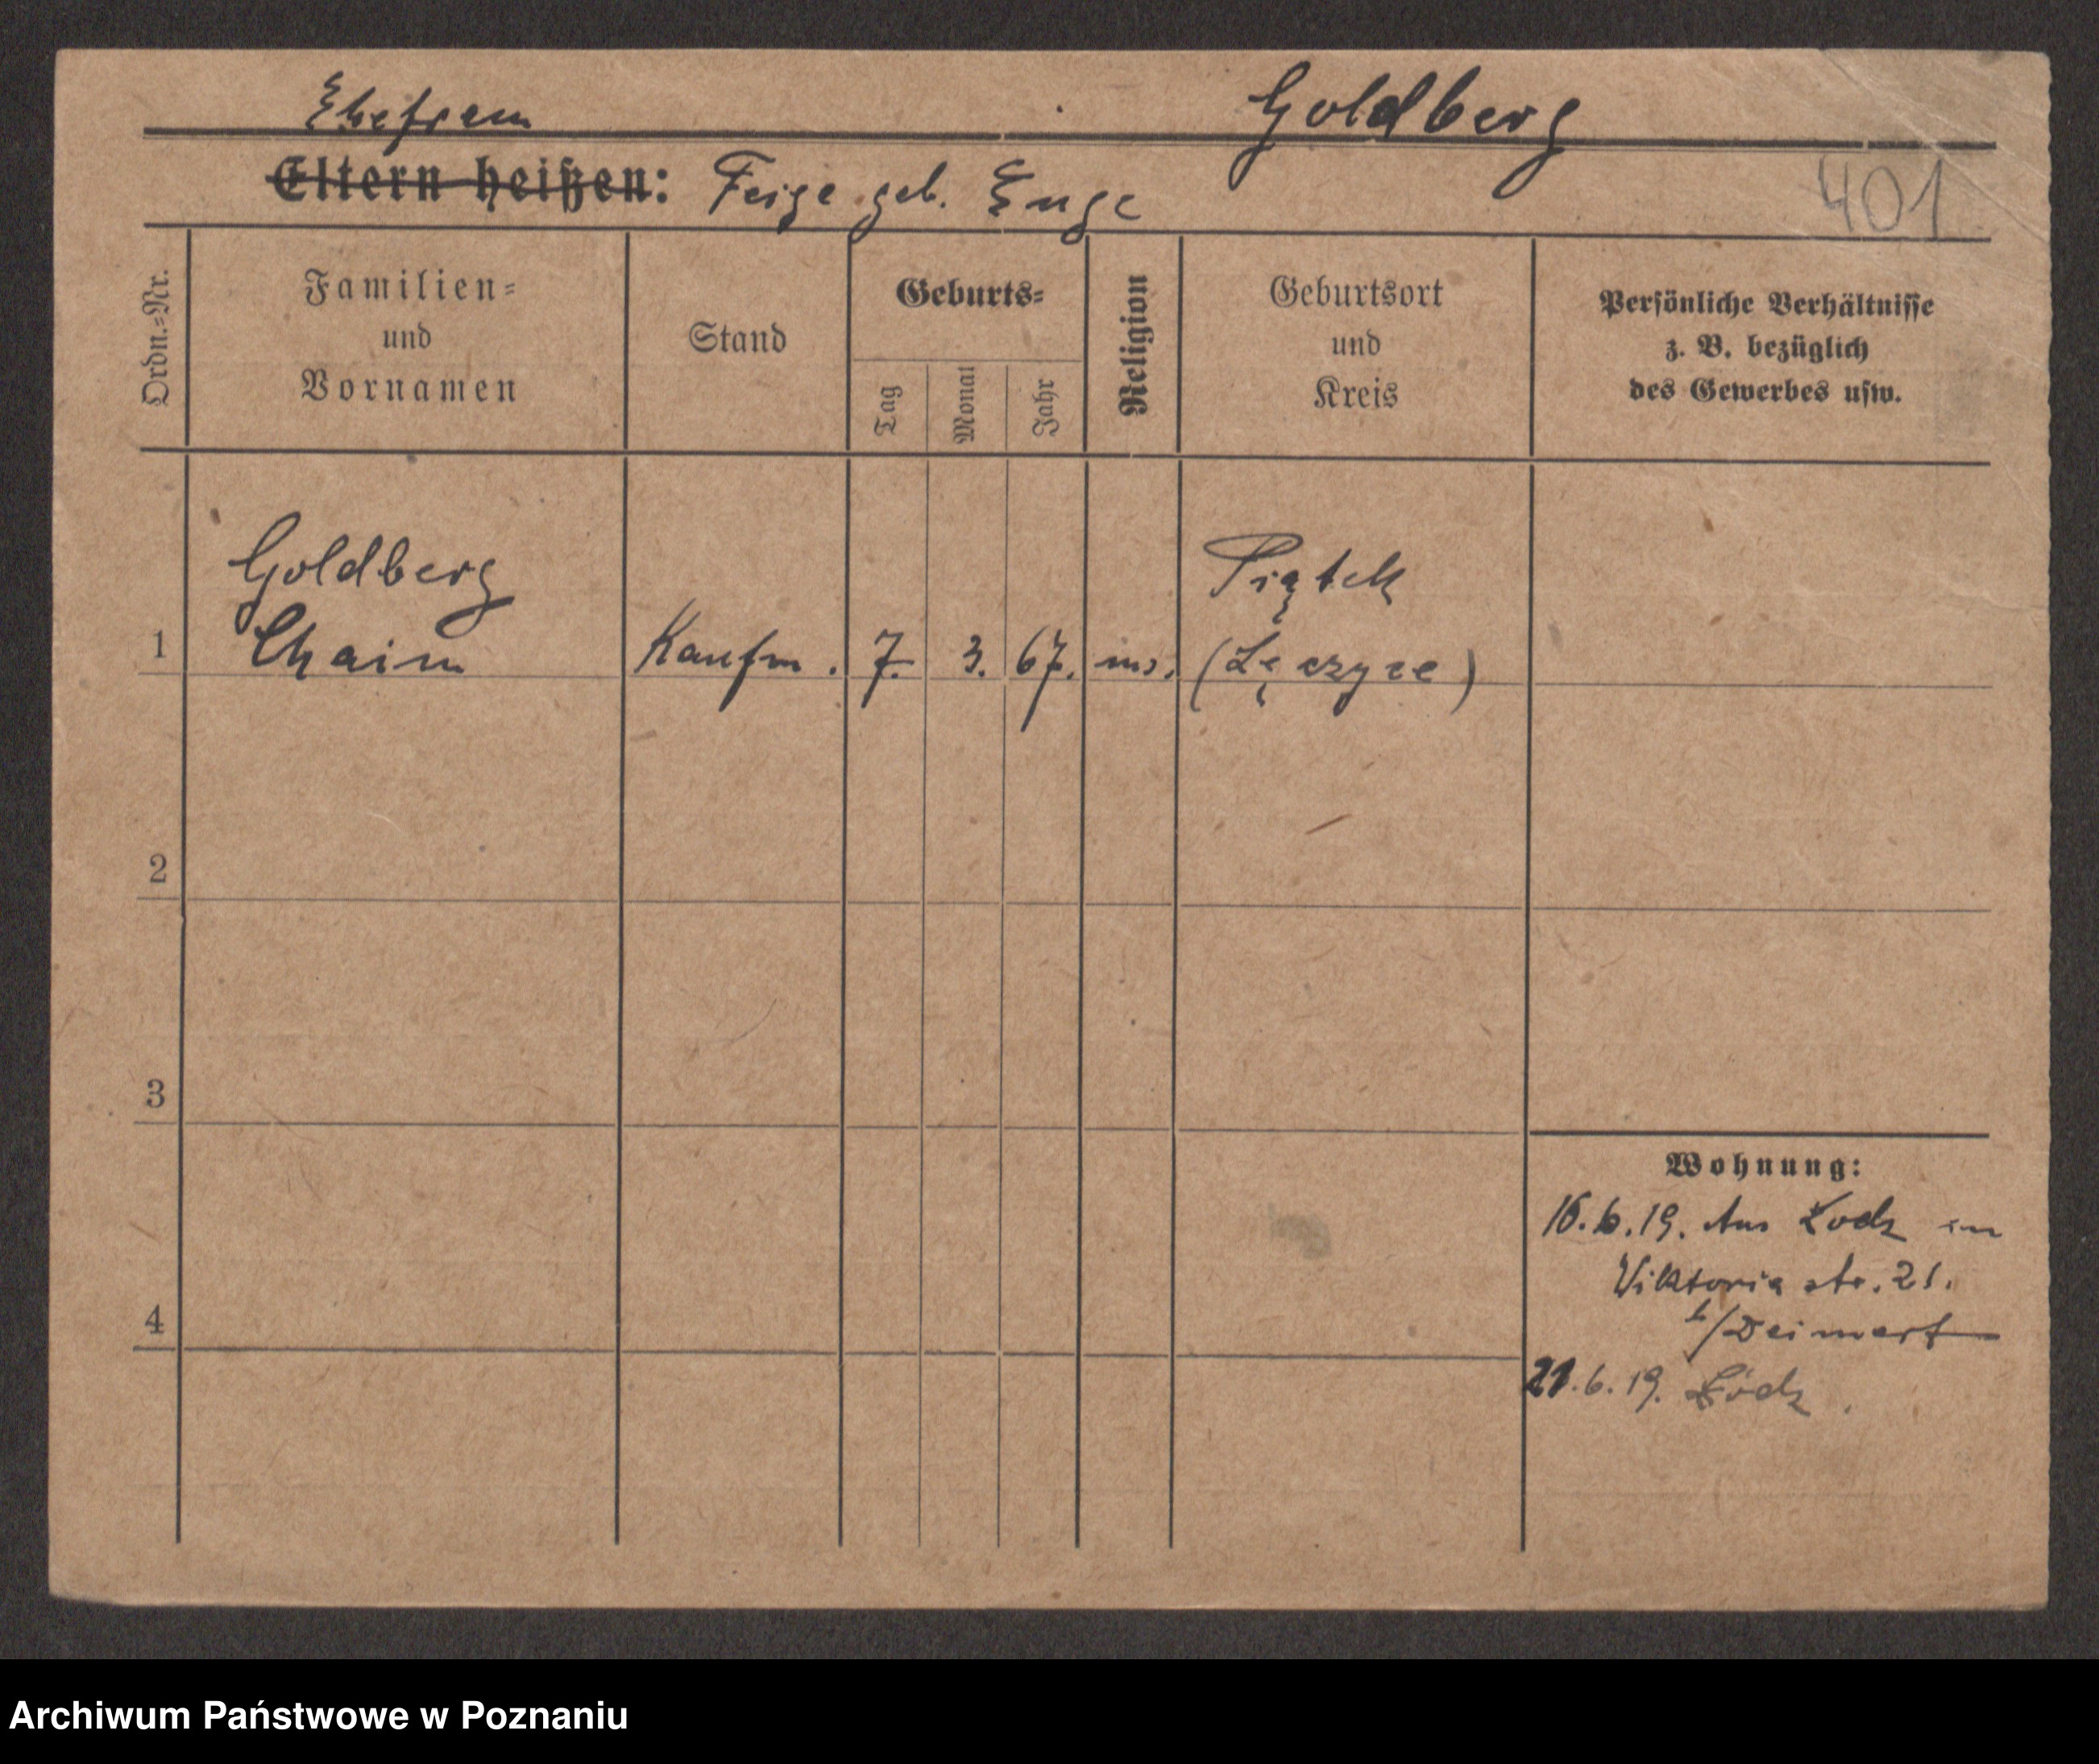 Ehefrau
Goldberg
Eltern heißen: Feige geb. Enge
401
Ordn.=Nr.
Familien=
und
Vornamen
Stand
Geburts=
Tag
Monat
Jahr
Religion
Geburtsort
und
Kreis
Persönliche Verhältnisse
z. B. bezüglich
des Gewerbes usw.
Goldberg
Piątek
1 Chaim Kaufm. 7. 3. 67. mos. (Łęczyce)
2
3
4
Wohnung:
16.6.19. Aus Łodz in
Viktoria str. 21.
b/
21.6.19. Łódz.
Archiwum Państwowe w Poznaniu